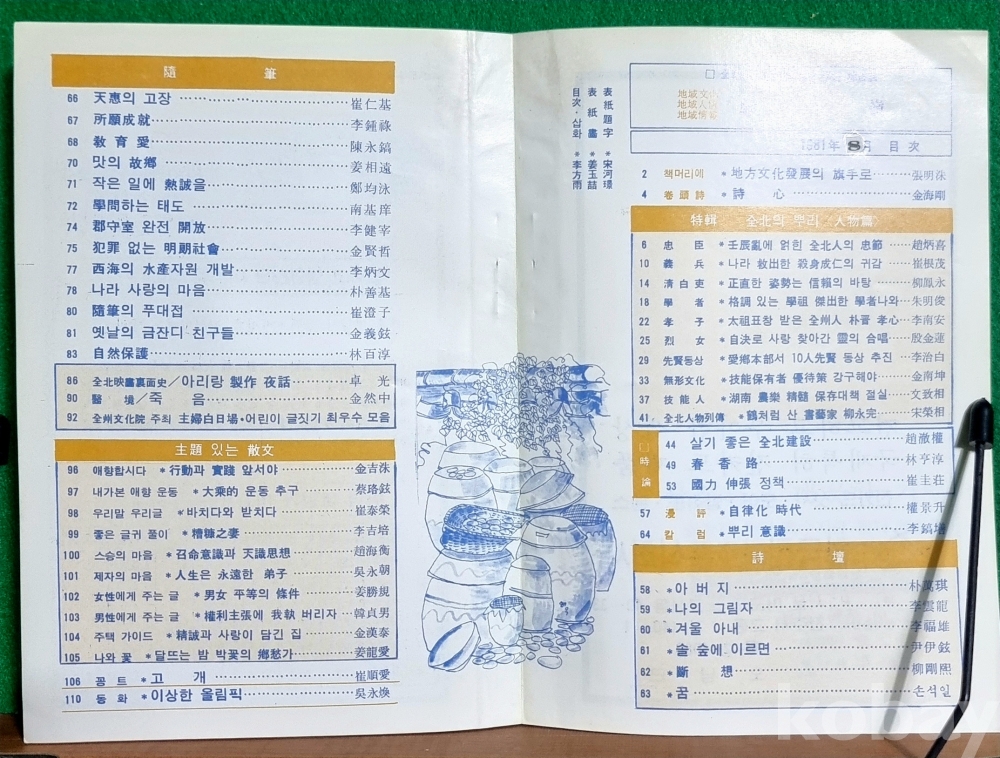 隨筆
66 天惠의 고장 崔仁基
67 所願成就 李鍾祿
68 敎育愛 陳永鎬
70 맛의 故鄕 姜相遠
71 작은 일에 熱誠을 鄭均泳
72 學問하는 태도 南基庠
74 郡守室 완전 開放 李健宰
75 犯罪 없는 明朗社會 金賢哲
77 西海의 水產자원 개발 李炳文
78 나라 사랑의 마음 朴善基
80 隨筆의 푸대접 崔澄子
81 옛날의 금잔디 친구들 金義鉉
83 自然保護 林百淳
86 全北映畵裏面史/아리랑 製作 夜話 卓光
90 醫 /죽음 金然中
92 全州文化院 주최 主婦白日場·어린이 글짓기 최우수 모음
主題 있는 散文
96 애향합시다 *行動과 實踐 앞서야 金吉洙
97 내가본 애향 운동 *大乘的 운동 추구 蔡珞鉉
98 우리말 우리글 *바치다와 받치다 崔泰榮
99 좋은 글귀 풀이 *糟糠之妻 李吉培
100 스승의 마음 *召命意識과 天識思想 趙海衡
101 제자의 마음 *人生은 永遠한 弟子 吳永朝
102 女性에게 주는 글 *男女 平等의 條件 姜勝規
103 男性에게 주는 글 *權利主張에 我執 버리자 韓貞男
104 주택 가이드 *精誠과 사랑이 담긴 집 金漢泰
105 나와 꽃 *달뜨는 밤 박꽃의 鄕愁가 姜龍愛
106 꽁트 *고개 崔順愛
110 동화 *이상한 올림픽 吳永煥
表紙題字 *宋河璟
表紙畵 *姜玉喆
目次·삽화 *李方雨
地域文
地域人
地域情
1981年 8月 目次
2 책머리에 *地方文化發展의 旗手로 張明洙
4 卷頭詩 *詩心 金海剛
特輯 全北의 뿌리 人物篇
6 忠臣 *壬辰亂에 얽힌 全北人의 忠節 趙炳喜
10 義兵 *나라 救出한 殺身成仁의 귀감 崔根茂
14 淸白吏 *正直한 姿勢는 信賴의 바탕 柳鳳永
18 學者 *格調 있는 學祖 傑出한 學者나와 朱明俊
22 孝子 *太祖표창 받은 全州人 朴晋 孝心 李南安
25 烈女 *自決로 사랑 찾아간 靈의 合唱 殷金蓮
29 先賢동상 *愛鄕本部서 10人先賢 동상 추진 李治白
33 無形文化 *技能保有者 優待策 강구해야 金南坤
37 技能人 *湖南 農樂 精髓 保存대책 절실 文致相
41 全北人物列傳 *鶴처럼 산 書藝家 柳永完 宋榮相
時論
44 살기 좋은 全北建設 趙澈權
49 春香路 林亨淳
53 國力 伸張 정책 崔圭莊
57 漫評 *自律化 時代 權景升
64 칼럼 *뿌리 意識 李鎬
詩壇
58 *아버지 朴萬琪
59 *나의 그림자 李雲龍
60 *겨울 아내 李福雄
61 *솔 숲에 이르면 尹伊鉉
62 *斷想 柳剛熙
63 *꿈 손석일
kobay